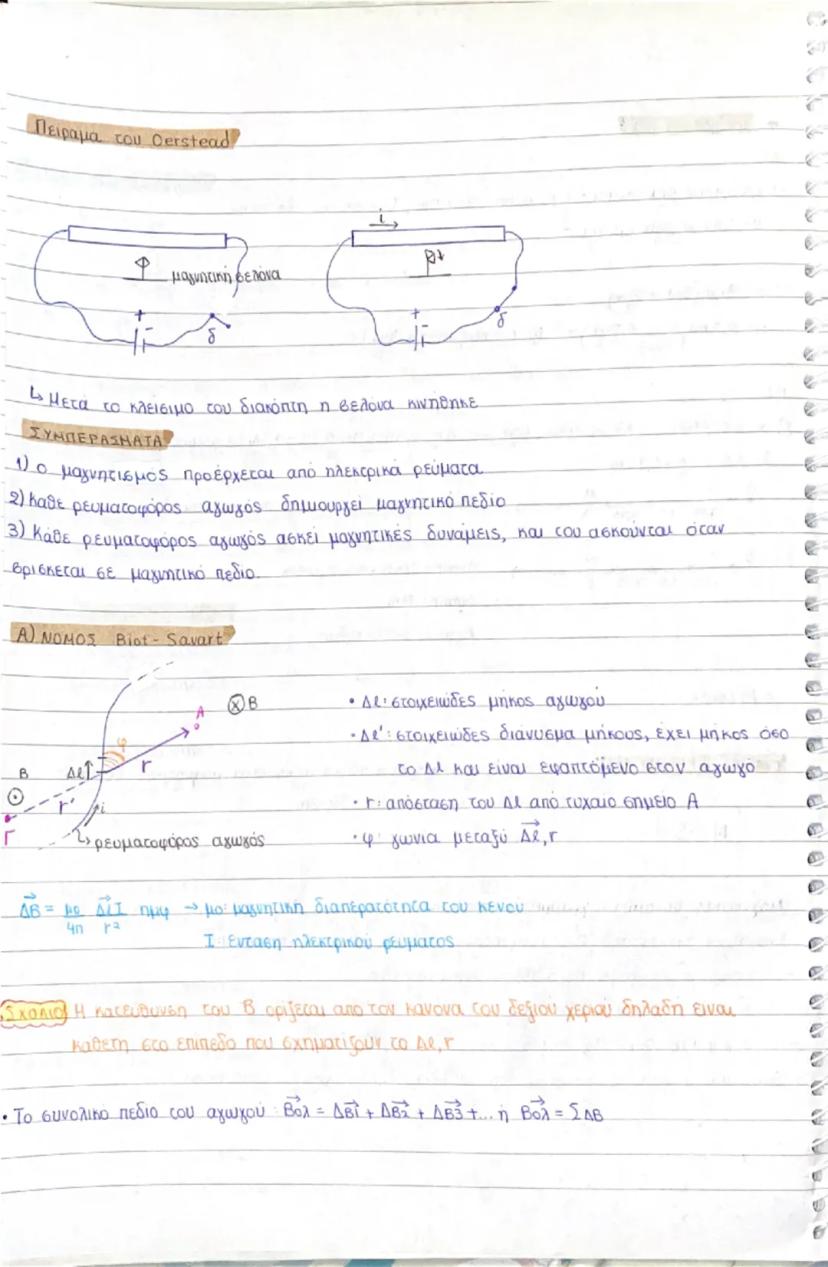 Πείραμα του Oerstead
i
μαγνητική βελόνα
+ - δ
+ - δ
↳ Μετά το κλείσιμο του διακόπτη η βελόνα κινήθηκε
ΣΥΜΠΕΡΑΣΜΑΤΑ
1) Ο μαγνητισμός προέρχεται από ηλεκτρικά ρεύματα
2) Κάθε ρευματοφόρος αγωγός δημιουργεί μαγνητικό πεδίο
3) Κάθε ρευματοφόρος αγωγός ασκεί μαγνητικές δυνάμεις, και του ασκούνται όταν
βρίσκεται σε μαγνητικό πεδίο.
Α) ΝΟΜΟΣ Biot - Savart
A ⊗ B
φ
Δl r
B
⊙ r' i
Γ
↳ ρευματοφόρος αγωγός
• Δl: στοιχειώδες μήκος αγωγού
• Δl': στοιχειώδες διάνυσμα μήκους, έχει μήκος όσο
το Δl και είναι εφαπτόμενο στον αγωγό
• r: απόσταση του Δl από τυχαίο σημείο Α
• φ: γωνία μεταξύ Δl⃗, r
ΔB⃗ = μο/4π Δl⃗I/r² ημφ → μο: μαγνητική διαπερατότητα του κενού
I: Ένταση ηλεκτρικού ρεύματος
Σχόλιο Η κατεύθυνση του Β ορίζεται από τον κανόνα του δεξιού χεριού δηλαδή είναι
κάθετη στο επίπεδο που σχηματίζουν το Δl, r
• Το συνολικό πεδίο του αγωγού: Bολ⃗ = ΔB1⃗ + ΔB2⃗ + ΔB3⃗ +... ή Bολ⃗ = ΣΔB